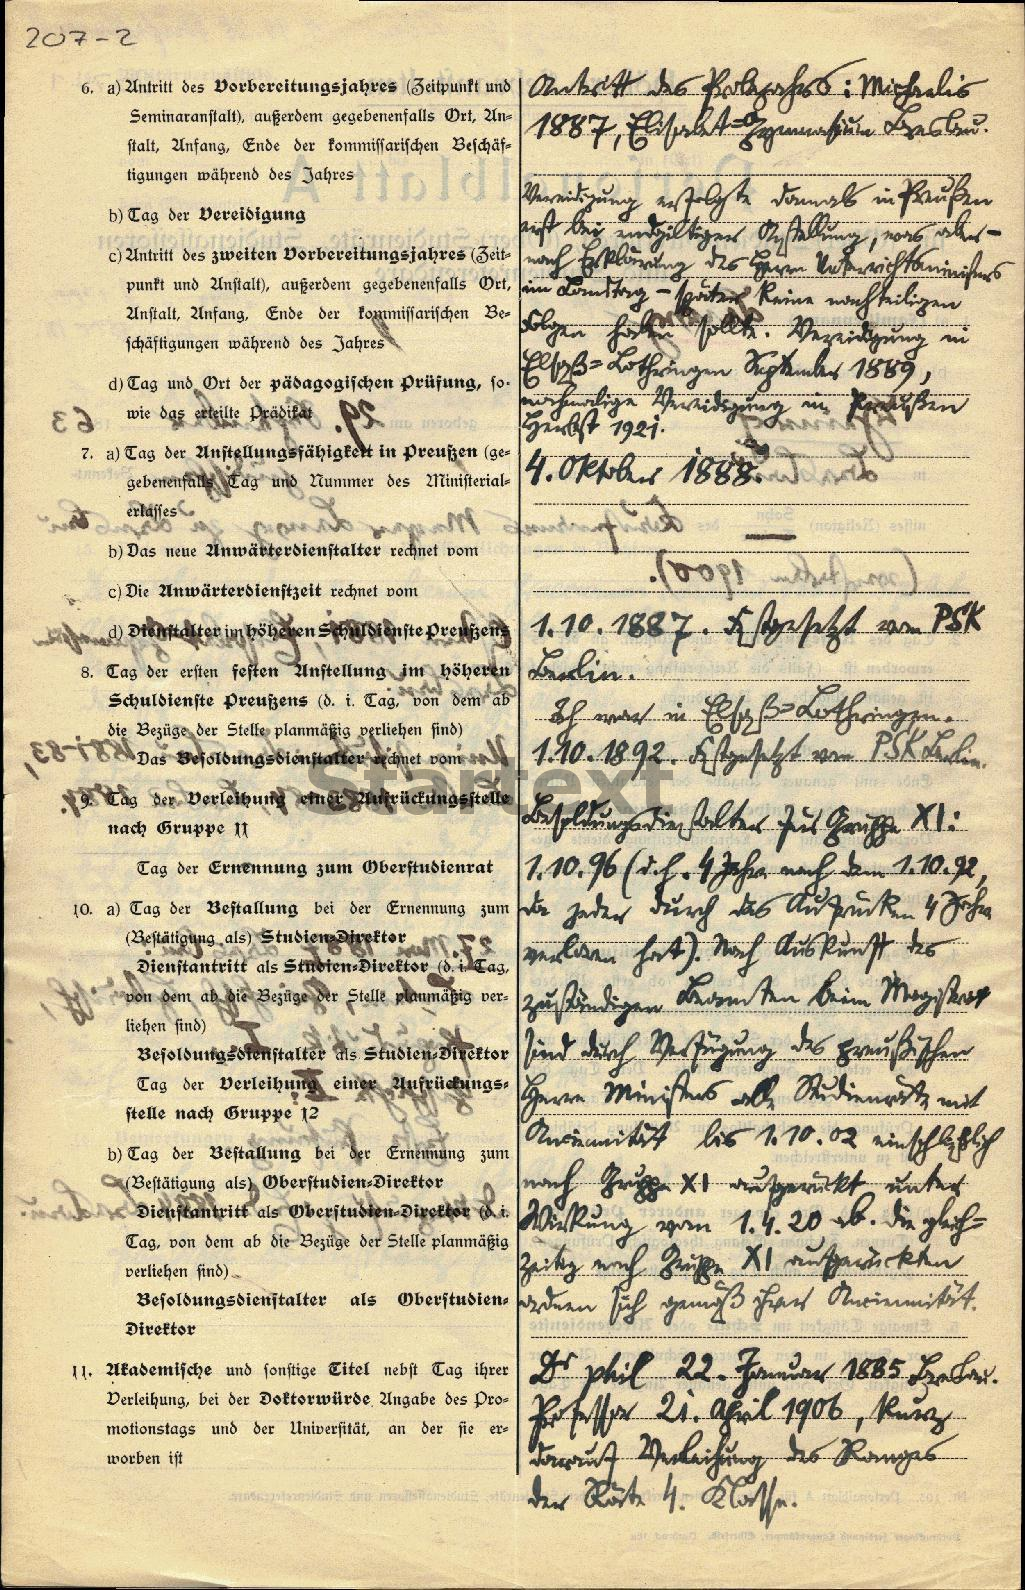 207-2
6. a) Antritt des Vorbereitungsjahres (Zeitpunkt und
Seminaranstalt), außerdem gegebenenfalls Ort, An-
stalt, Anfang, Ende der kommissarischen Beschäf-
tigungen während des Jahres
b) Tag der Vereidigung
c) Antritt des zweiten Vorbereitungsjahres (Zeit-
punkt und Anstalt), außerdem gegebenenfalls Ort,
Anstalt, Anfang, Ende der kommissarischen Be-
schäftigungen während des Jahres
d) Tag und Ort der pädagogischen Prüfung, so-
wie das erteilte Prädikat
7. a) Tag der Anstellungsfähigkeit in Preußen (ge-
gebenenfalls Tag und Nummer des Ministerial-
erlasses
b) Das neue Anwärterdienstalter rechnet vom
c) Die Anwärterdienstzeit rechnet vom
d) Dienstalter im höheren Schuldienste Preußens
8. Tag der ersten festen Anstellung im höheren
Schuldienste Preußens (d. i. Tag, von dem ab
die Bezüge der Stelle planmäßig verliehen sind)
Das Besoldungsdienstalter rechnet vom
9. Tag der Verleihung einer Aufrückungsstelle
nach Gruppe 11
Tag der Ernennung zum Oberstudienrat
10. a) Tag der Bestallung bei der Ernennung zum
(Bestätigung als) Studien-Direktor
Dienstantritt als Studien-Direktor (d. i. Tag,
von dem ab die Bezüge der Stelle planmäßig ver-
liehen sind)
Besoldungsdienstalter als Studien-Direktor
Tag der Verleihung einer Aufrückungs-
stelle nach Gruppe 12
b) Tag der Bestallung bei der Ernennung zum
(Bestätigung als) Oberstudien-Direktor
Dienstantritt als Oberstudien-Direktor (d. i.
Tag, von dem ab die Bezüge der Stelle planmäßig
verliehen sind)
Besoldungsdienstalter als Oberstudien-
Direktor
11. Akademische und sonstige Titel nebst Tag ihrer
Verleihung, bei der Doktorwürde Angabe des Pro-
motionstags und der Universität, an der sie er-
worben ist
Antritt des Probejahres: Michaelis
1887, Elisabet=Gymnasium Breslau.
Vereidigung erfolgte damals in Preußen
erst bei endgiltiger Anstellung, was aber -
nach Erklärung des Herrn Unterrichtsministers
im Landtag - später keine nachteiligen
Folgen haben sollte. Vereidigung in
Elsaß=Lothringen September 1889,
nochmalige Vereidigung in Preußen
Herbst 1921.
4. Oktober 1888.
1.10.1887. Festgesetzt vom PSK
Berlin.
Ich war in Elsaß=Lothringen.
1.10.1892. Festgesetzt vom PSK Berlin.
Besoldungsdienstalter für Gruppe XI:
1.10.96 (d.h. 4 Jahre nach dem 1.10.92,
da jeder durch das Aufrücken 4 Jahre
verloren hat). Nach Auskunft des
zuständigen Beamten beim Magistrat
sind durch Verfügung des preußischen
Herrn Ministers alle Studienräte mit
Anciennität bis 1.10.02 einschließlich
nach Gruppe XI aufgerückt unter
Wirkung vom 1.4.20 ab. Die gleich=
zeitig nach Gruppe XI aufgerückten
ordnen sich gemäß ihrer Anciennität.
Dr phil 22. Januar 1885 Breslau.
Professor 21. April 1906, kurz
darauf Verleihung des Ranges
der Räte 4. Klasse.
Startext